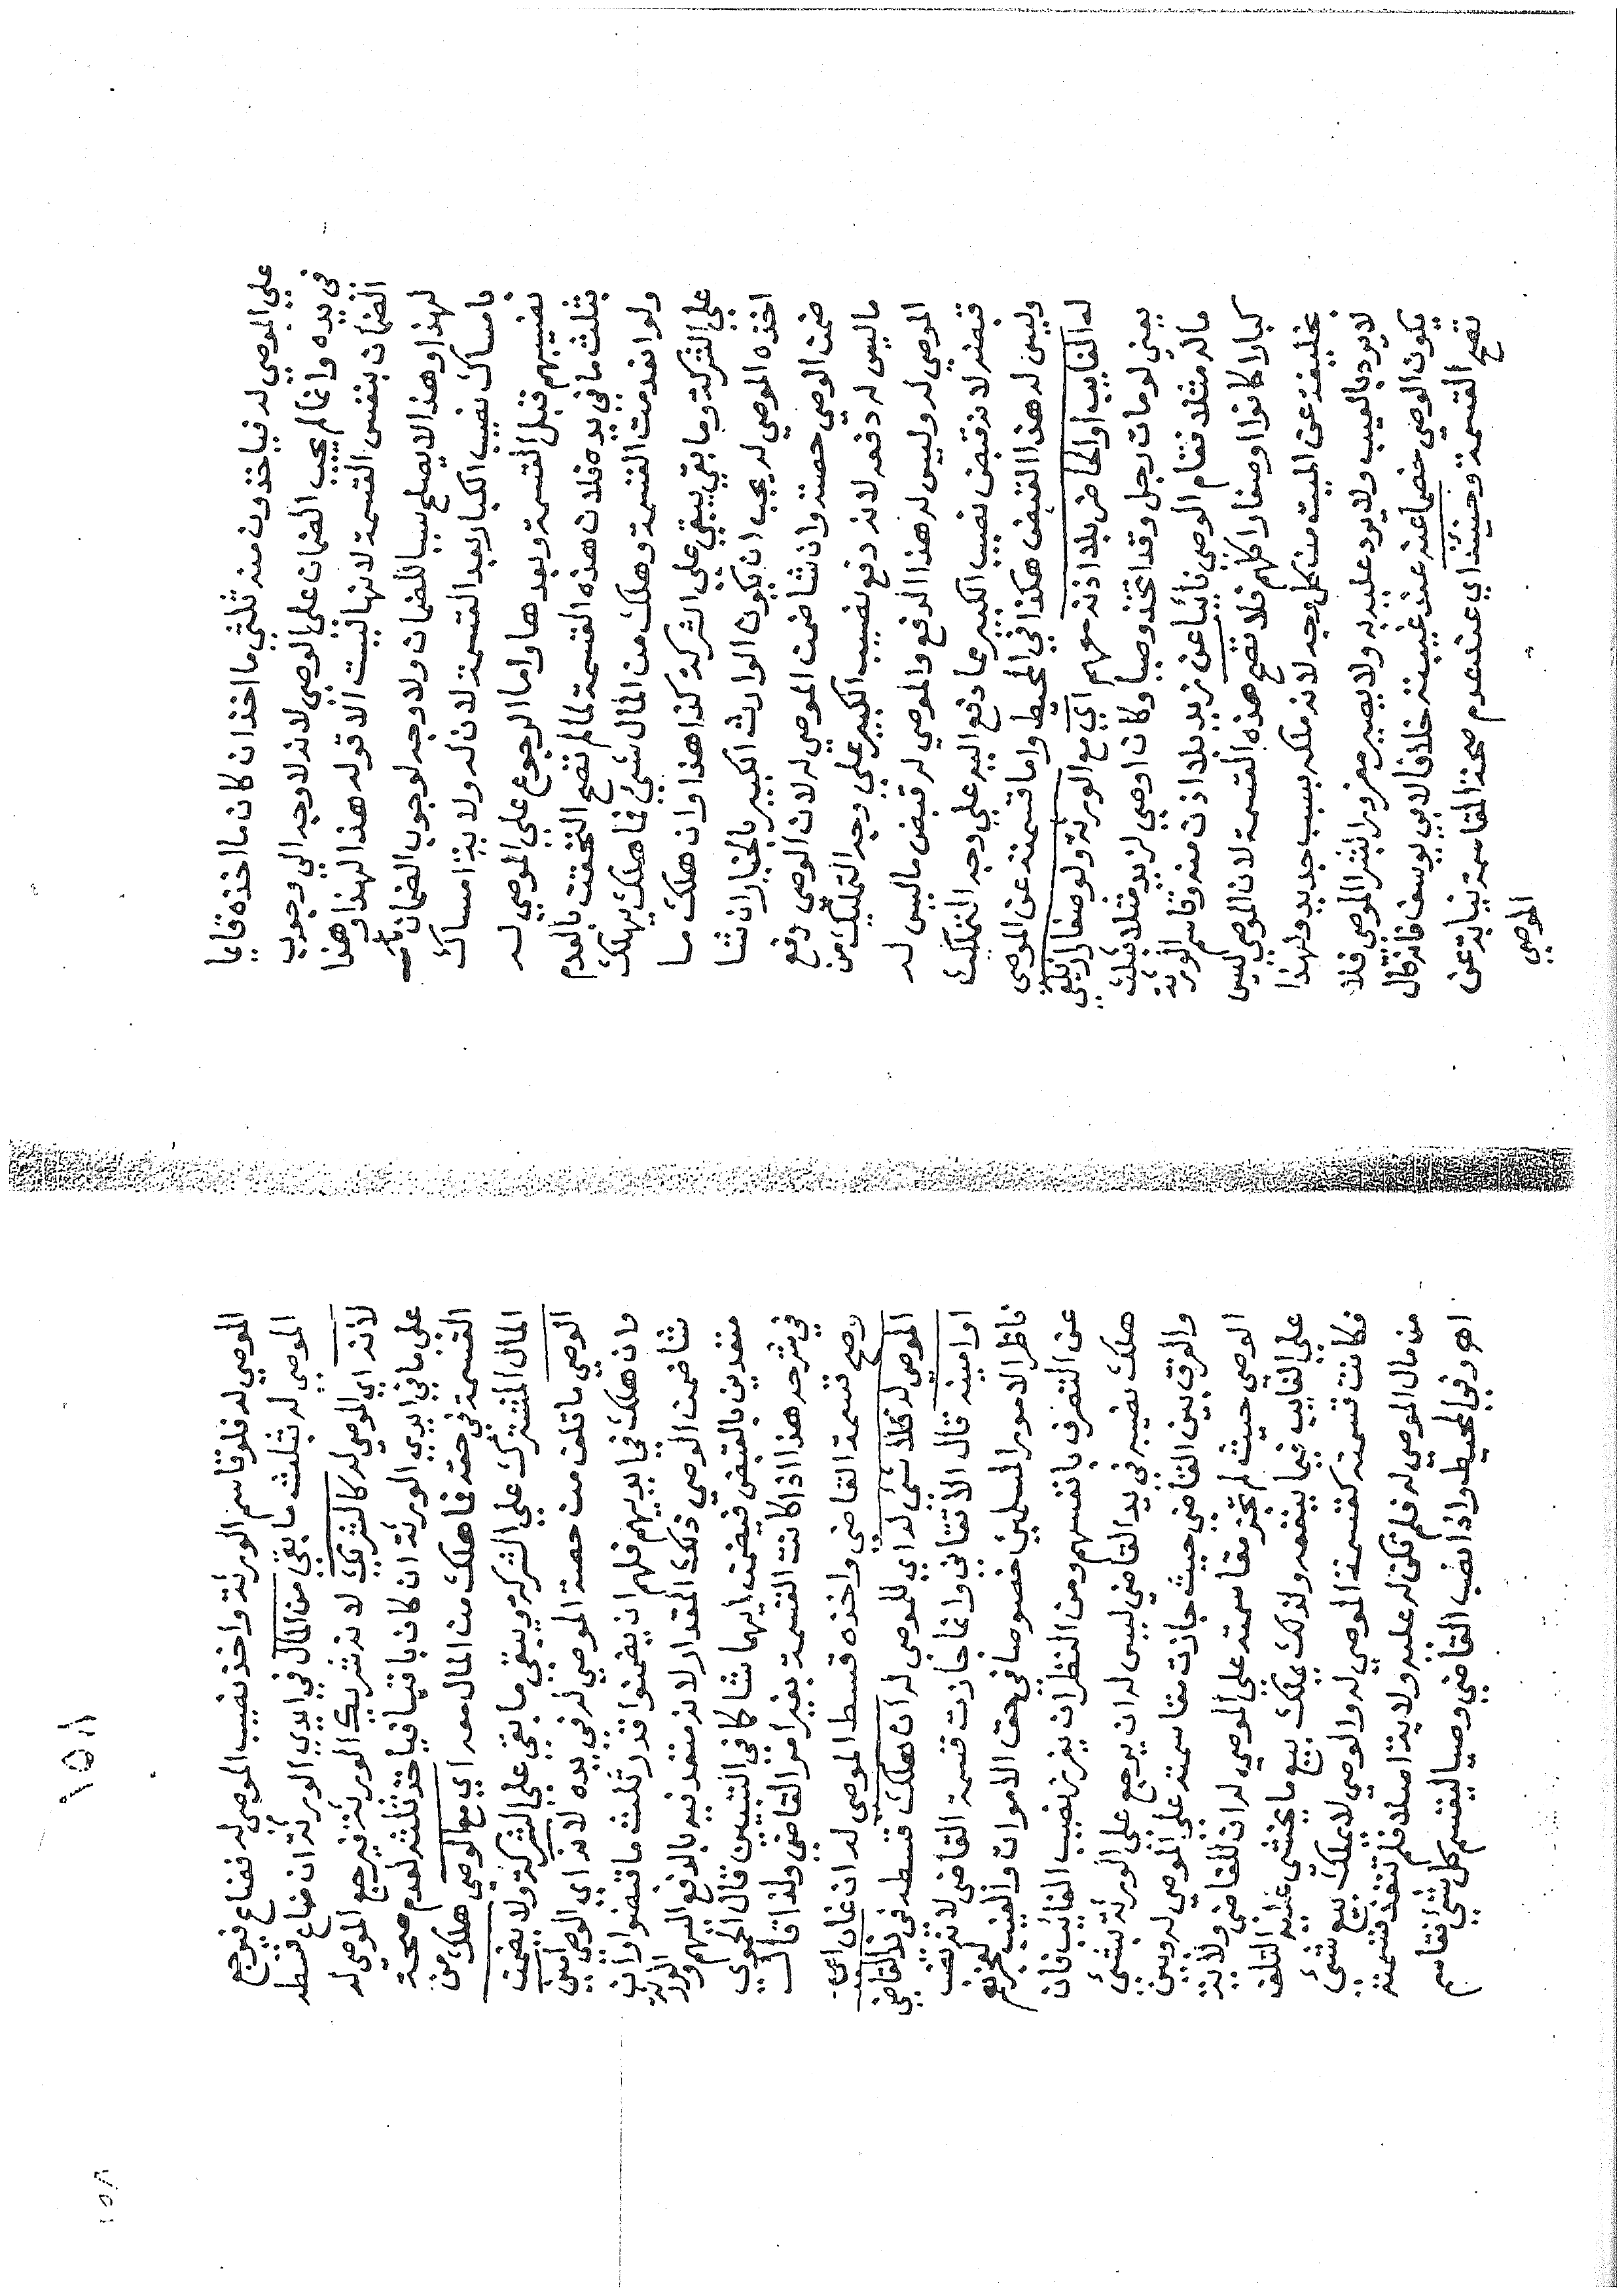 على الموصي له فياخذون منه ثلثي ما اخذ ان كان ما اخذه قايما
في يده وانما لم يجب الضمان على الوصي لانه لا وجه الى وجوب
الضمان بنفس القسمة لانها ليست الا قوله هذا لهذا وهذا
لهذا وهذا لا يصلح سببا للضمان ولا وجه لوجوب الضمان
بامساك نصيب الكبار بعد القسمة لان له ولاية امساك
نصيبهم قبل القسمة وبعدها واما الرجوع على الموصي له
بثلث ما في يده فلان هذه القسمة لما لم تصح التحقت بالعدم
ولو انعدمت القسمة وهلك من المال شيء فما هلك يهلك
على الشركة وما بقي يبقى على الشركة كذا هذا وان هلك ما
اخذه الموصي له يجب ان يكون الوارث الكبير بالخيار ان شا
ضمن الوصي حصته وان شا ضمن الموصي له لان الوصي دفع
ما ليس له دفعه لانه دفع نصيب الكبير على وجه التمليك من
الموصي له وليس له هذا الدفع والموصي له قبض ما ليس له
قبضه لانه قبض نصيب الكبير مما دفع اليه على وجه التملك
وليس له هذا القبض هكذا في المحيط واما قسمته عن الموصى
له الغايب او الحاضر بلا اذنه معهم اي مع الورثة ولو صغارا
يعني لو مات رجل وقد اتخذ وصيا وكان اوصى لزيد مثلا بثلث
ماله مثلا فقام الوصي نائبا عن زيد بلا اذن منه وقاسم الورثة
كبارا كانوا او صغارا كلهم فلا تصح هذه القسمة لان الموصي ليس
بخليفة عن الميت من كل وجه لانه ملكه بسبب جديد ولهذا
لا يرد بالعيب ولا يرد عليه به ولا يصير مغرورا بشرا الموصي فلا
يكون الوصي خصما عنه عند غيبته خلافا لابي يوسف فانه قال
تصح القسمة وحينئذ اي عند عدم صحة المقاسمة نيابة عن
الموصى
١٥٨
الموصي له فلو قاسم الورثة واخذ نصيب الموصى له فضاع فيرجع
الموصى له بثلث ما بقي من المال في ايدي الورثة ان ضاع قسطه
لانه اي الموصي له كالشريك لانه شريك الورثة فيرجع الموصى له
على ما في ايدي الورثة ان كان باقيا فياخذ ثلثه لعدم صحة
القسمة في حقه فما هلك من المال معه اي مع الوصي هلك من
المال المشترك على الشركة ويبقى ما بقي على الشركة ولا يضمن
الوصي ما تلف من حصة الموصي له في يده لانه اي الوصي امين
وان هلك في ايديهم فلهم ان يضمنوا قدر ثلث ما قبضوا وان
شا ضمن الوصي ذلك المقدار لانه متعد فيه بالدفع اليهم والورثة
متعدين بالقبض فيضمن ايهما شا كافي التبيين قال الحموي
في شرحه هذا اذا كانت القسمة بغير امر القاضي ولذا قال
وصح قسمة القاضي واخذه قسط الموصى له ان غاب اي
الموصى له فلا شي له اي للموصى له ان هلك قسطه في يد القاضي
او امينه قال الاتقاني وانما جازت قسمة القاضي لانه نصب
ناظرا لامور المسلمين خصوصا في حق الاموات والغيب لعجزهم
عن التصرف بانفسهم ومن النظر ان يفرز نصيب الغائب فان
هلك نصيبه في يد القاضي ليس له ان يرجع على الورثة بشيء
والفرق بين القاضي حيث جازت مقاسمته على الموصي له وبين
الوصي حيث لم تجز مقاسمته على الموصي له ان للقاضي ولاية
على الغايب فيما ينفعه ولذلك يملك بيع ما يخشى عليه التلف
فكانت قسمته كقسمة الموصي له والوصي لا يملك بيع شيء
من مال الموصي له فلم تكن له عليه ولاية اصلا فلم تنفذ قسمته
اهـ وفي المحيط واذا نصب القاضي وصيا ليقسم كل شيء فقاسم
١٥٨